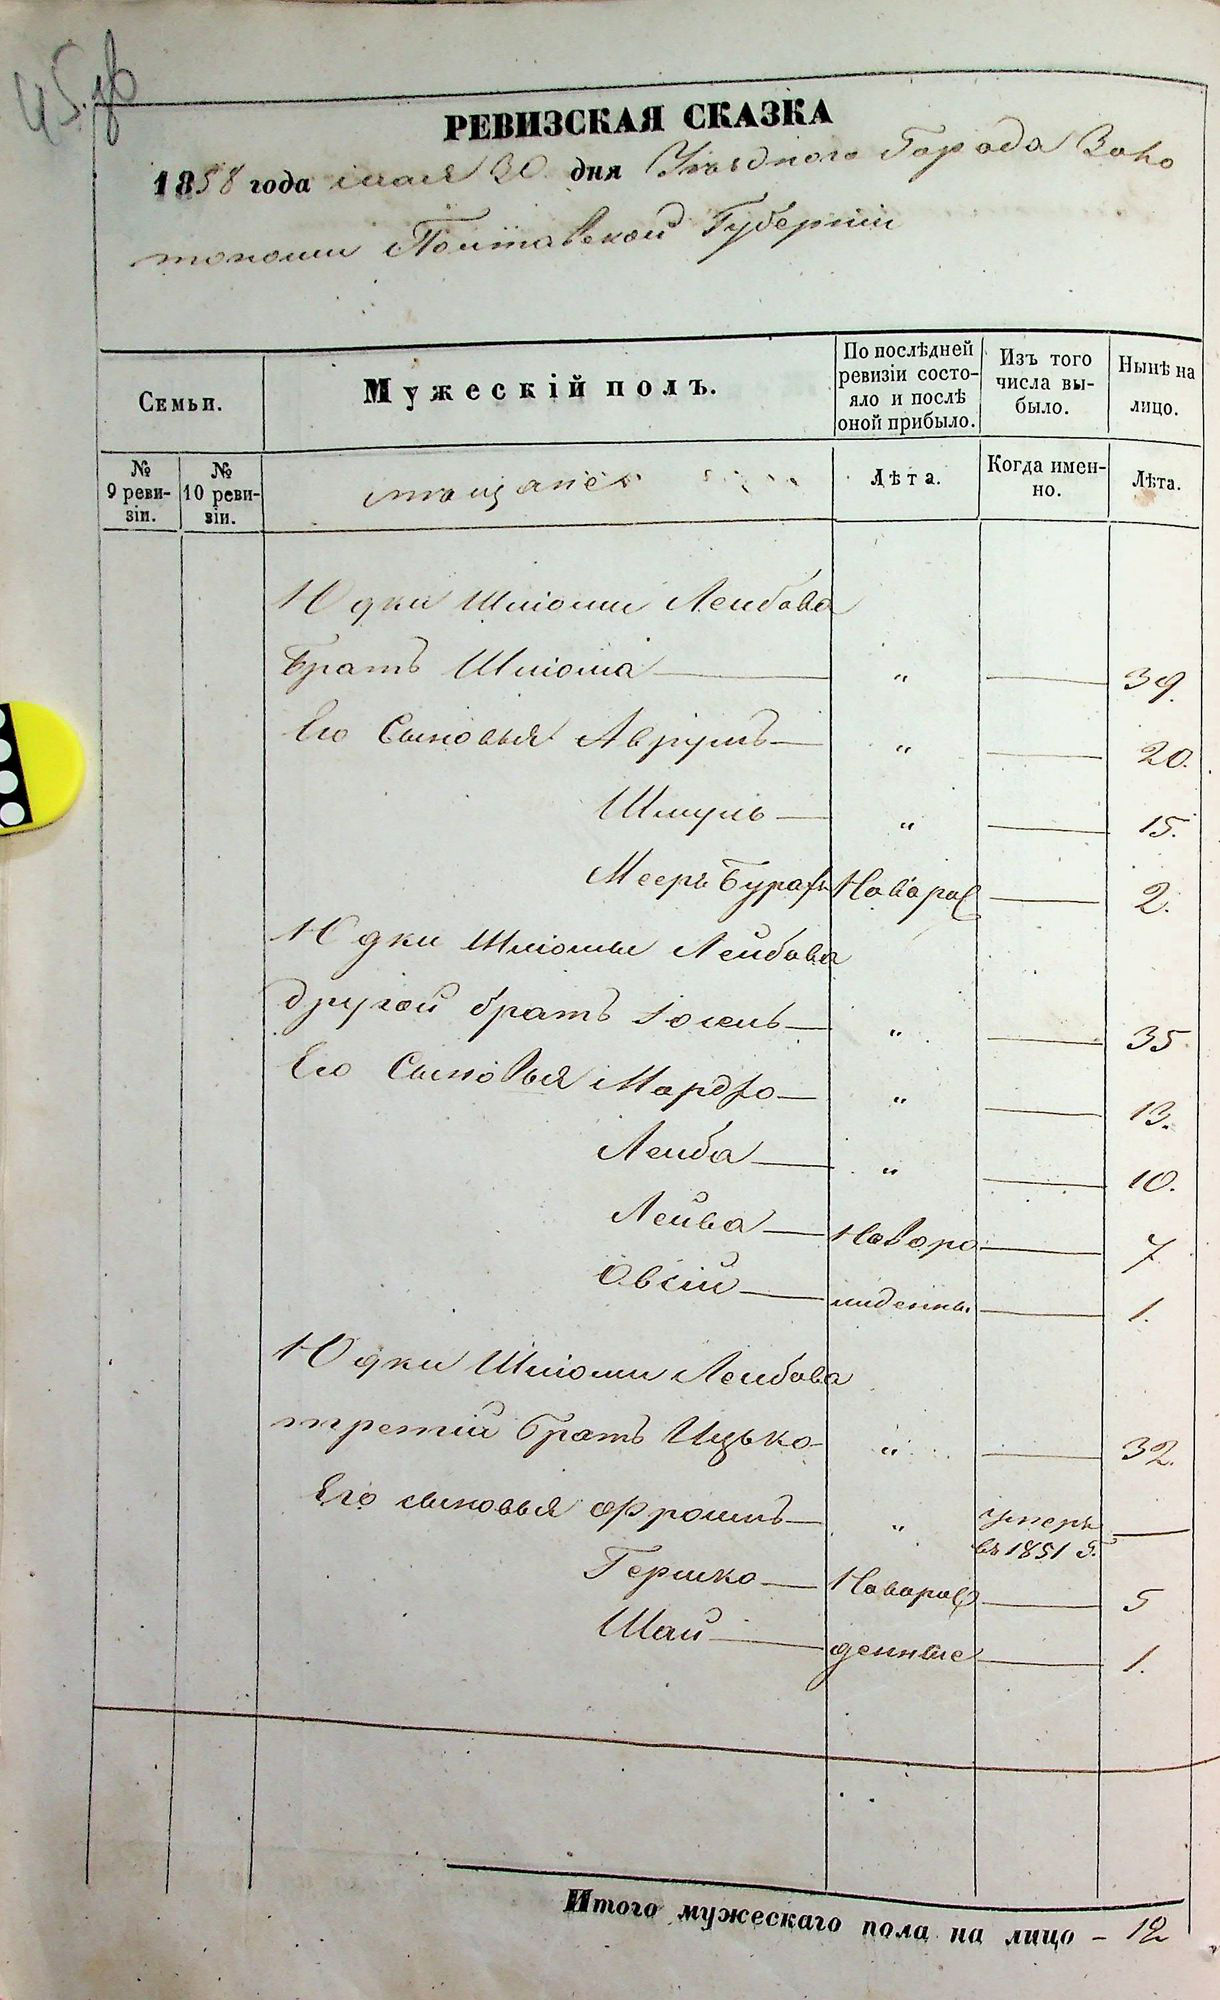 45.
РЕВИЗСКАЯ СКАЗКА
1858 года мая 30 дня Уѣзднаго Города Золо
тоноши Полтавской Губерніи
Семьи.
Мужескій полъ.
По послѣдней ревизіи состояло и послѣ оной прибыло.
Изъ того числа выбыло.
Нынѣ на лицо.
№ 9 ревизіи.
№ 10 ревизіи.
мѣщанее
Лѣта.
Когда именно.
Лѣта.
Юдки Шліомы Лейбова
братъ Шліома — " — 39.
Его Сыновья Аврумъ — " — 20.
Шмуль — " — 15.
Мееръ Новорож — 2.
Юдки Шліомы Лейбова
другой братъ Іосель — " — 35
Его Сыновья Мордко — " — 13.
Лейба — " — 10.
Лейва — Новоро — 7
Овсій — жденны. — 1.
Юдки Шліомы Лейбова
третій братъ Ицько — " — 32.
Его сыновья Фроимъ — " умеръ въ 1851 г. —
Гершко — Новорож — 5
Шай — денные — 1.
Итого мужескаго пола на лицо – 12